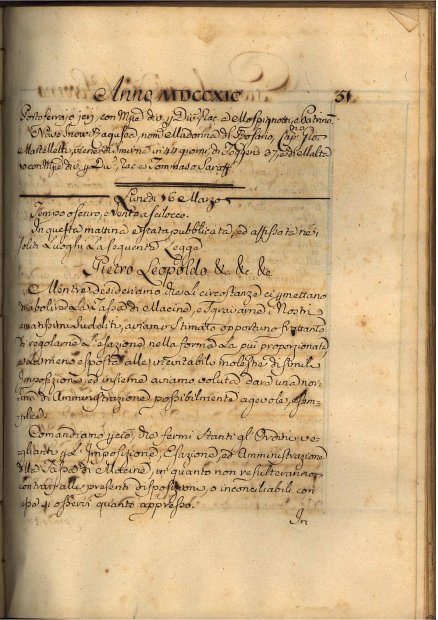 Anno MDCCXIC 31
Portoferrajo jeri con
Nave
Martellotti, viene di Smirne in 44 giorni, di
con Tommaso
Lunedi 16 Marzo
Tempo oscuro, e Vento a scilocco.
In questa mattina è stata pubblicata, ed affissata ne i
soliti Luoghi La seguente Legge
Pietro Leopoldo &c. &c. &c.
Mentre desideriamo che le circostanze ci permettano
di abolire La Tassa di Macine, e sgravarne i Nostri
amatissimi sudditi, aviamo stimato opportuno frattanto
di regolarne L'esazione nella forma La più proporzionata,
e La meno esposta alle inevitabili molestie di simile
Imposizione, ed insieme aviamo voluta darō una nor-
ma di Amministrazione possibilmente agevole, e sem-
plice.
Comandiamo perciò, che fermi stanti gl'Ordini ve-
glianti per L'Imposizione, Esazione, ed Amministrazione
della Tassa di Macine, in quanto non resulteranno
contrarj alle presenti disposizioni, o inconciliabili con
esse si osservi quanto appresso.
In